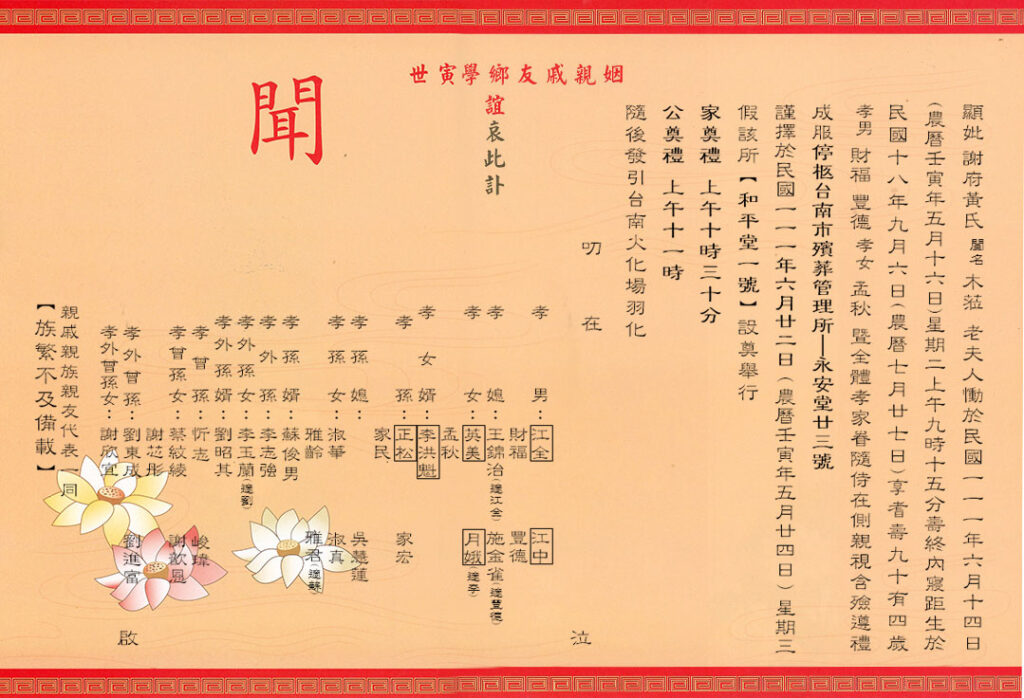 顯妣 謝府黃氏 閨名 木蒞 老夫人慟於民國一一一年六月十四日
(農曆壬寅年五月十六日)星期二上午九時十五分壽終內寢距生於
民國十八年九月六日(農曆七月廿七日)享耆壽九十有四歲
孝男 財福 豐德 孝女 孟秋 暨全體孝家眷隨侍在側親視含殮遵禮
成服停柩台南市殯葬管理所—永安堂廿三號
謹擇於民國一一一年六月廿二日(農曆壬寅年五月廿四日)星期三
假該所【和平堂一號】設奠舉行
家奠禮 上午十時三十分
公奠禮 上午十一時
隨後發引台南火化場羽化
叨在
姻親戚友鄉學寅世
誼哀此訃
聞
孝男：江全 江中
財福 豐德
孝媳：王錦治(適江全) 施金雀(適豐德)
孝女：英美 月娥(適李)
孟秋
孝女婿：李洪魁
孝孫：正松 家宏
家民
孝孫媳： 吳慧蓮
孝孫女：淑華 淑真
雅齡 雅君(適蘇)
孝孫婿：蘇俊男
孝外孫：李志強
孝外孫女：李玉蘭(適劉)
孝外孫婿：劉昭其
孝曾孫：忻志 峻瑋
孝曾孫女：蔡紋綾 謝歆恩
謝芯彤
孝外曾孫：劉東成 劉進富
孝外曾孫女：謝欣宜
親戚親族親友代表一同
【族繁不及備載】
泣啟